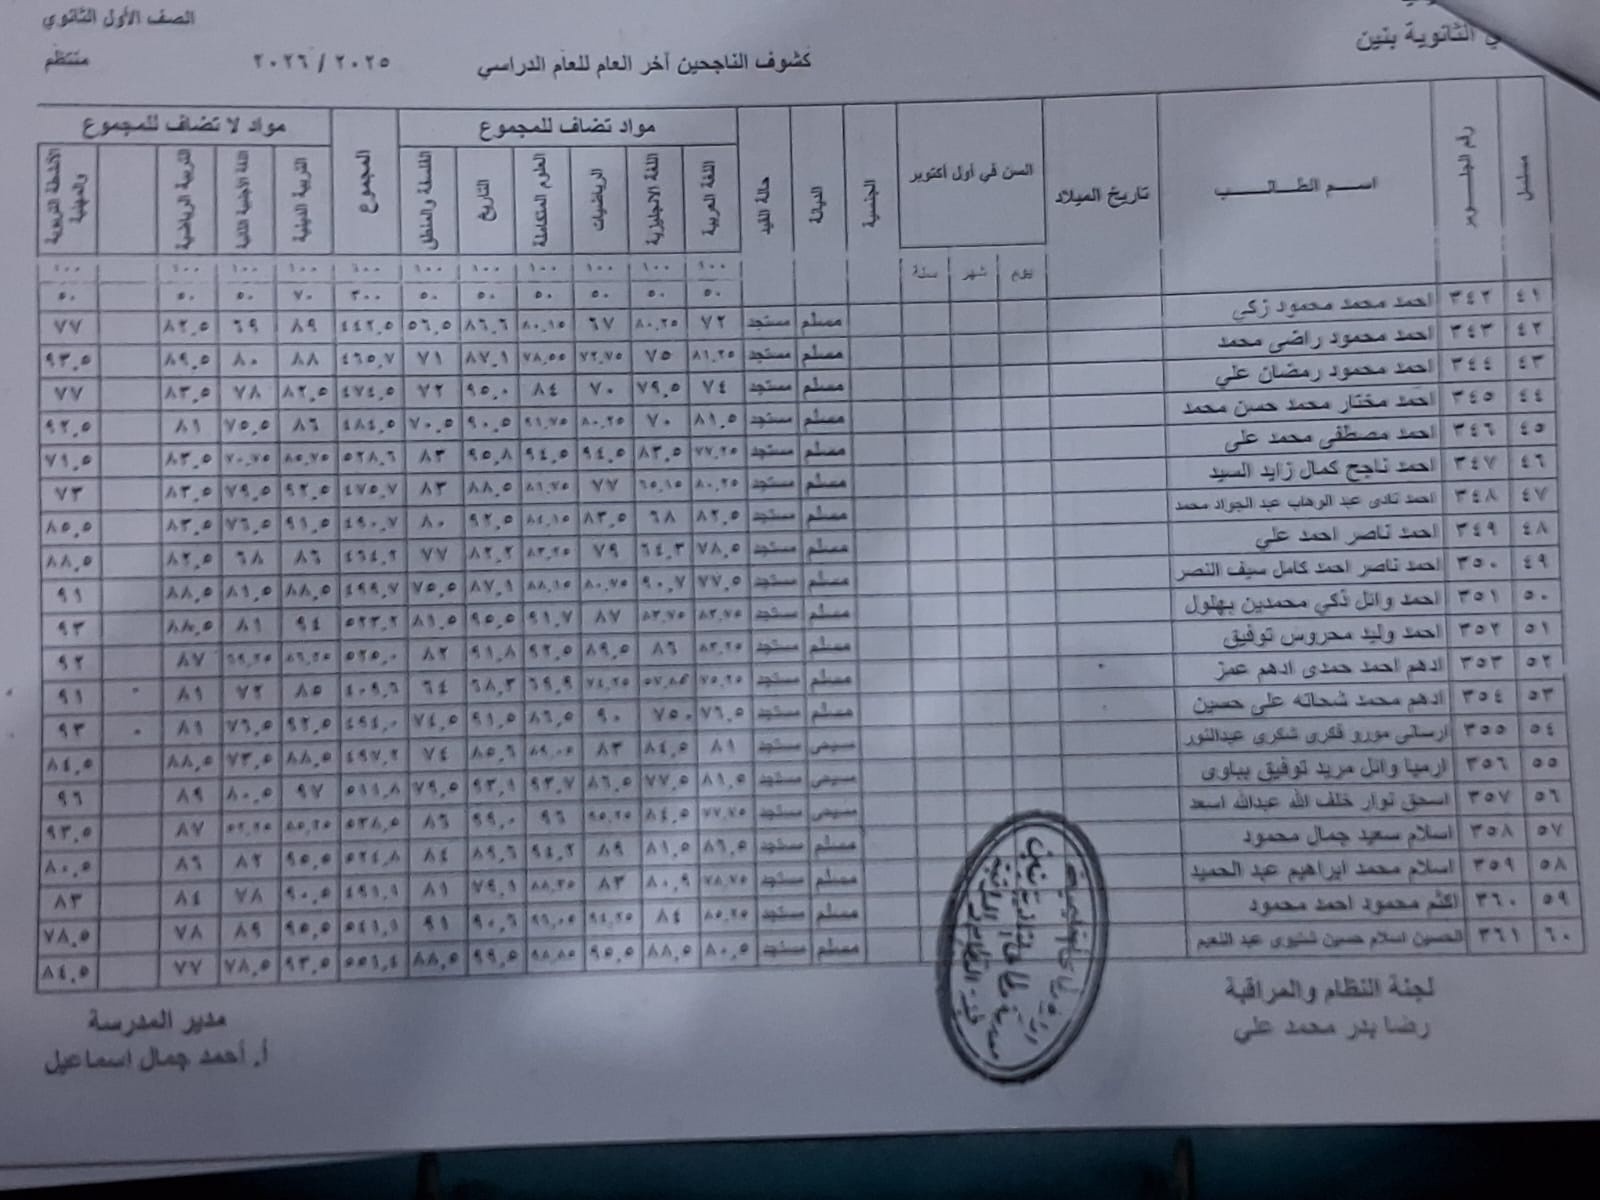 الثانوية بنين
الصف الأول الثانوي
كشوف الناجحين آخر العام للعام الدراسي ٢٠٢٥ / ٢٠٢٦ منتظم
مسلسل رقم الجلوس اسم الطالب تاريخ الميلاد السن في أول أكتوبر الجنسية الديانة حالة القيد مواد تضاف للمجموع المجموع مواد لا تضاف للمجموع
يوم شهر سنة اللغة العربية اللغة الانجليزية الرياضيات العلوم المتكاملة التاريخ الفلسفة والمنطق التربية الدينية اللغة الأجنبية الثانية التربية الرياضية الأنشطة التربوية والمهنية
١٠٠ ١٠٠ ١٠٠ ١٠٠ ١٠٠ ١٠٠ ٦٠٠ ١٠٠ ١٠٠ ١٠٠ ١٠٠
٥٠ ٥٠ ٥٠ ٥٠ ٥٠ ٥٠ ٣٠٠ ٧٠ ٥٠ ٥٠ ٥٠
٤١ ٣٤٢ احمد محمد محمود زكي مسلم مستجد ٧٢ ٨٠,٢٥ ٦٧ ٨٠,١٥ ٨٦,٦ ٥٦,٥ ٤٤٢,٥ ٨٩ ٦٩ ٨٢,٥ ٧٧
٤٢ ٣٤٣ احمد محمود راضى محمد مسلم مستجد ٨١,٢٥ ٧٥ ٧٢,٧٥ ٧٨,٥٥ ٨٧,١ ٧١ ٤٦٥,٧ ٨٨ ٨٠ ٨٩,٥ ٩٣,٥
٤٣ ٣٤٤ احمد محمود رمضان علي مسلم مستجد ٧٤ ٧٩,٥ ٧٠ ٨٤ ٩٥,٠ ٧٢ ٤٧٤,٥ ٨٢,٥ ٧٨ ٨٣,٥ ٧٧
٤٤ ٣٤٥ احمد مختار محمد حسن محمد مسلم مستجد ٨١,٥ ٧٠ ٨٠,٢٥ ٩١,٧٥ ٩٠,٥ ٧٠,٥ ٤٨٤,٥ ٨٦ ٧٥,٥ ٨١ ٩٢,٥
٤٥ ٣٤٦ احمد مصطفى محمد على مسلم مستجد ٧٧,٢٥ ٨٣,٥ ٩٤,٥ ٩٤,٥ ٩٥,٨ ٨٣ ٥٢٨,٦ ٨٥,٧٥ ٧٠,٧٥ ٨٣,٥ ٧١,٥
٤٦ ٣٤٧ احمد ناجح كمال زايد السيد مسلم مستجد ٨٠,٢٥ ٦٥,١٥ ٧٧ ٨١,٧٥ ٨٨,٥ ٨٣ ٤٧٥,٧ ٩٢,٥ ٧٩,٥ ٨٣,٥ ٧٣
٤٧ ٣٤٨ احمد نادى عبد الوهاب عبد الجواد محمد مسلم مستجد ٨٢,٥ ٦٨ ٨٣,٥ ٨٤,١٥ ٩٢,٥ ٨٠ ٤٩٠,٧ ٩١,٥ ٧٦,٥ ٨٣,٥ ٨٥,٥
٤٨ ٣٤٩ احمد ناصر احمد علي مسلم مستجد ٧٨,٥ ٦٤,٣ ٧٩ ٨٣,٢٥ ٨٢,٢ ٧٧ ٤٦٤,٢ ٨٦ ٦٨ ٨٢,٥ ٨٨,٥
٤٩ ٣٥٠ احمد ناصر احمد كامل سيف النصر مسلم مستجد ٧٧,٥ ٩٠,٧ ٨٠,٧٥ ٨٨,١٥ ٨٧,١ ٧٥,٥ ٤٩٩,٧ ٨٨,٥ ٨١,٥ ٨٨,٥ ٩١
٥٠ ٣٥١ احمد وائل ذكي محمدين بهلول مسلم مستجد ٨٣,٧٥ ٨٣,٧٥ ٨٧ ٩١,٧ ٩٥,٥ ٨١,٥ ٥٢٣,٢ ٩٤ ٨١ ٨٨,٥ ٩٣
٥١ ٣٥٢ احمد وليد محروس توفيق مسلم مستجد ٨٣,٢٥ ٨٦ ٨٩,٥ ٩٢,٥ ٩١,٨ ٨٢ ٥٢٥,٠ ٨٦,٢٥ ٦٩,٢٥ ٨٧ ٩٢
٥٢ ٣٥٣ ادهم احمد حمدى ادهم عمر مسلم مستجد ٧٥,٢٥ ٥٧,٨٥ ٧٤,٢٥ ٦٩,٩ ٦٨,٣ ٦٤ ٤٠٩,٦ ٨٥ ٧٢ ٨١ ٩١
٥٣ ٣٥٤ ادهم محمد شحاته على حسين مسلم مستجد ٧٦,٥ ٧٥٠ ٩٠ ٨٦,٥ ٩١,٥ ٧٤,٥ ٤٩٤,٠ ٩٢,٥ ٧٦,٥ ٨١ ٩٣
٥٤ ٣٥٥ ارسانى مورو فكرى شكرى عبدالنور مسيحى مستجد ٨١ ٨٤,٥ ٨٣ ٨٩,٠٥ ٨٥,٦ ٧٤ ٤٩٧,٢ ٨٨,٥ ٧٣,٥ ٨٨,٥ ٨٤,٥
٥٥ ٣٥٦ ارميا وائل مريد توفيق بباوى مسيحى مستجد ٨١,٥ ٧٧,٥ ٨٦,٥ ٩٣,٧ ٩٣,١ ٧٩,٥ ٥١١,٨ ٩٧ ٨٠,٥ ٨٩ ٩٦
٥٦ ٣٥٧ اسحق نوار خلف الله عبدالله اسعد مسيحى مستجد ٧٧,٧٥ ٨٤,٥ ٩٥,٢٥ ٩٦ ٩٩,٠ ٨٦ ٥٣٨,٥ ٨٥,٢٥ ٨٧ ٩٣,٥
٥٧ ٣٥٨ اسلام سعيد جمال محمود مسلم مستجد ٨٦,٥ ٨١,٥ ٨٩ ٩٤,٢ ٨٩,٦ ٨٤ ٥٢٤,٨ ٩٥,٥ ٨٢ ٨٦ ٨٠,٥
٥٨ ٣٥٩ اسلام محمد ابراهيم عبد الحميد مسلم مستجد ٧٨,٧٥ ٨٠,٩ ٨٣ ٨٨,٢٥ ٧٩,١ ٨١ ٤٩١,١ ٩٠,٥ ٧٨ ٨٤ ٨٣
٥٩ ٣٦٠ اكثم محمود احمد محمود مسلم مستجد ٨٥,٢٥ ٨٤ ٩٤,٢٥ ٩٦,٠٥ ٩٠,٦ ٩١ ٥٤١,١ ٩٥,٥ ٨٩ ٧٨ ٧٨,٥
٦٠ ٣٦١ الحسين اسلام حسين عبد النعيم مسلم مستجد ٨٠,٥ ٨٨,٥ ٩٥,٥ ٩٨,٨٥ ٩٩,٥ ٨٨,٥ ٥٥١,٤ ٩٣,٥ ٧٨,٥ ٧٧ ٨٤,٥
لجنة النظام والمراقبة
رضا بدر محمد علي
مدير المدرسة
أ. أحمد جمال اسماعيل